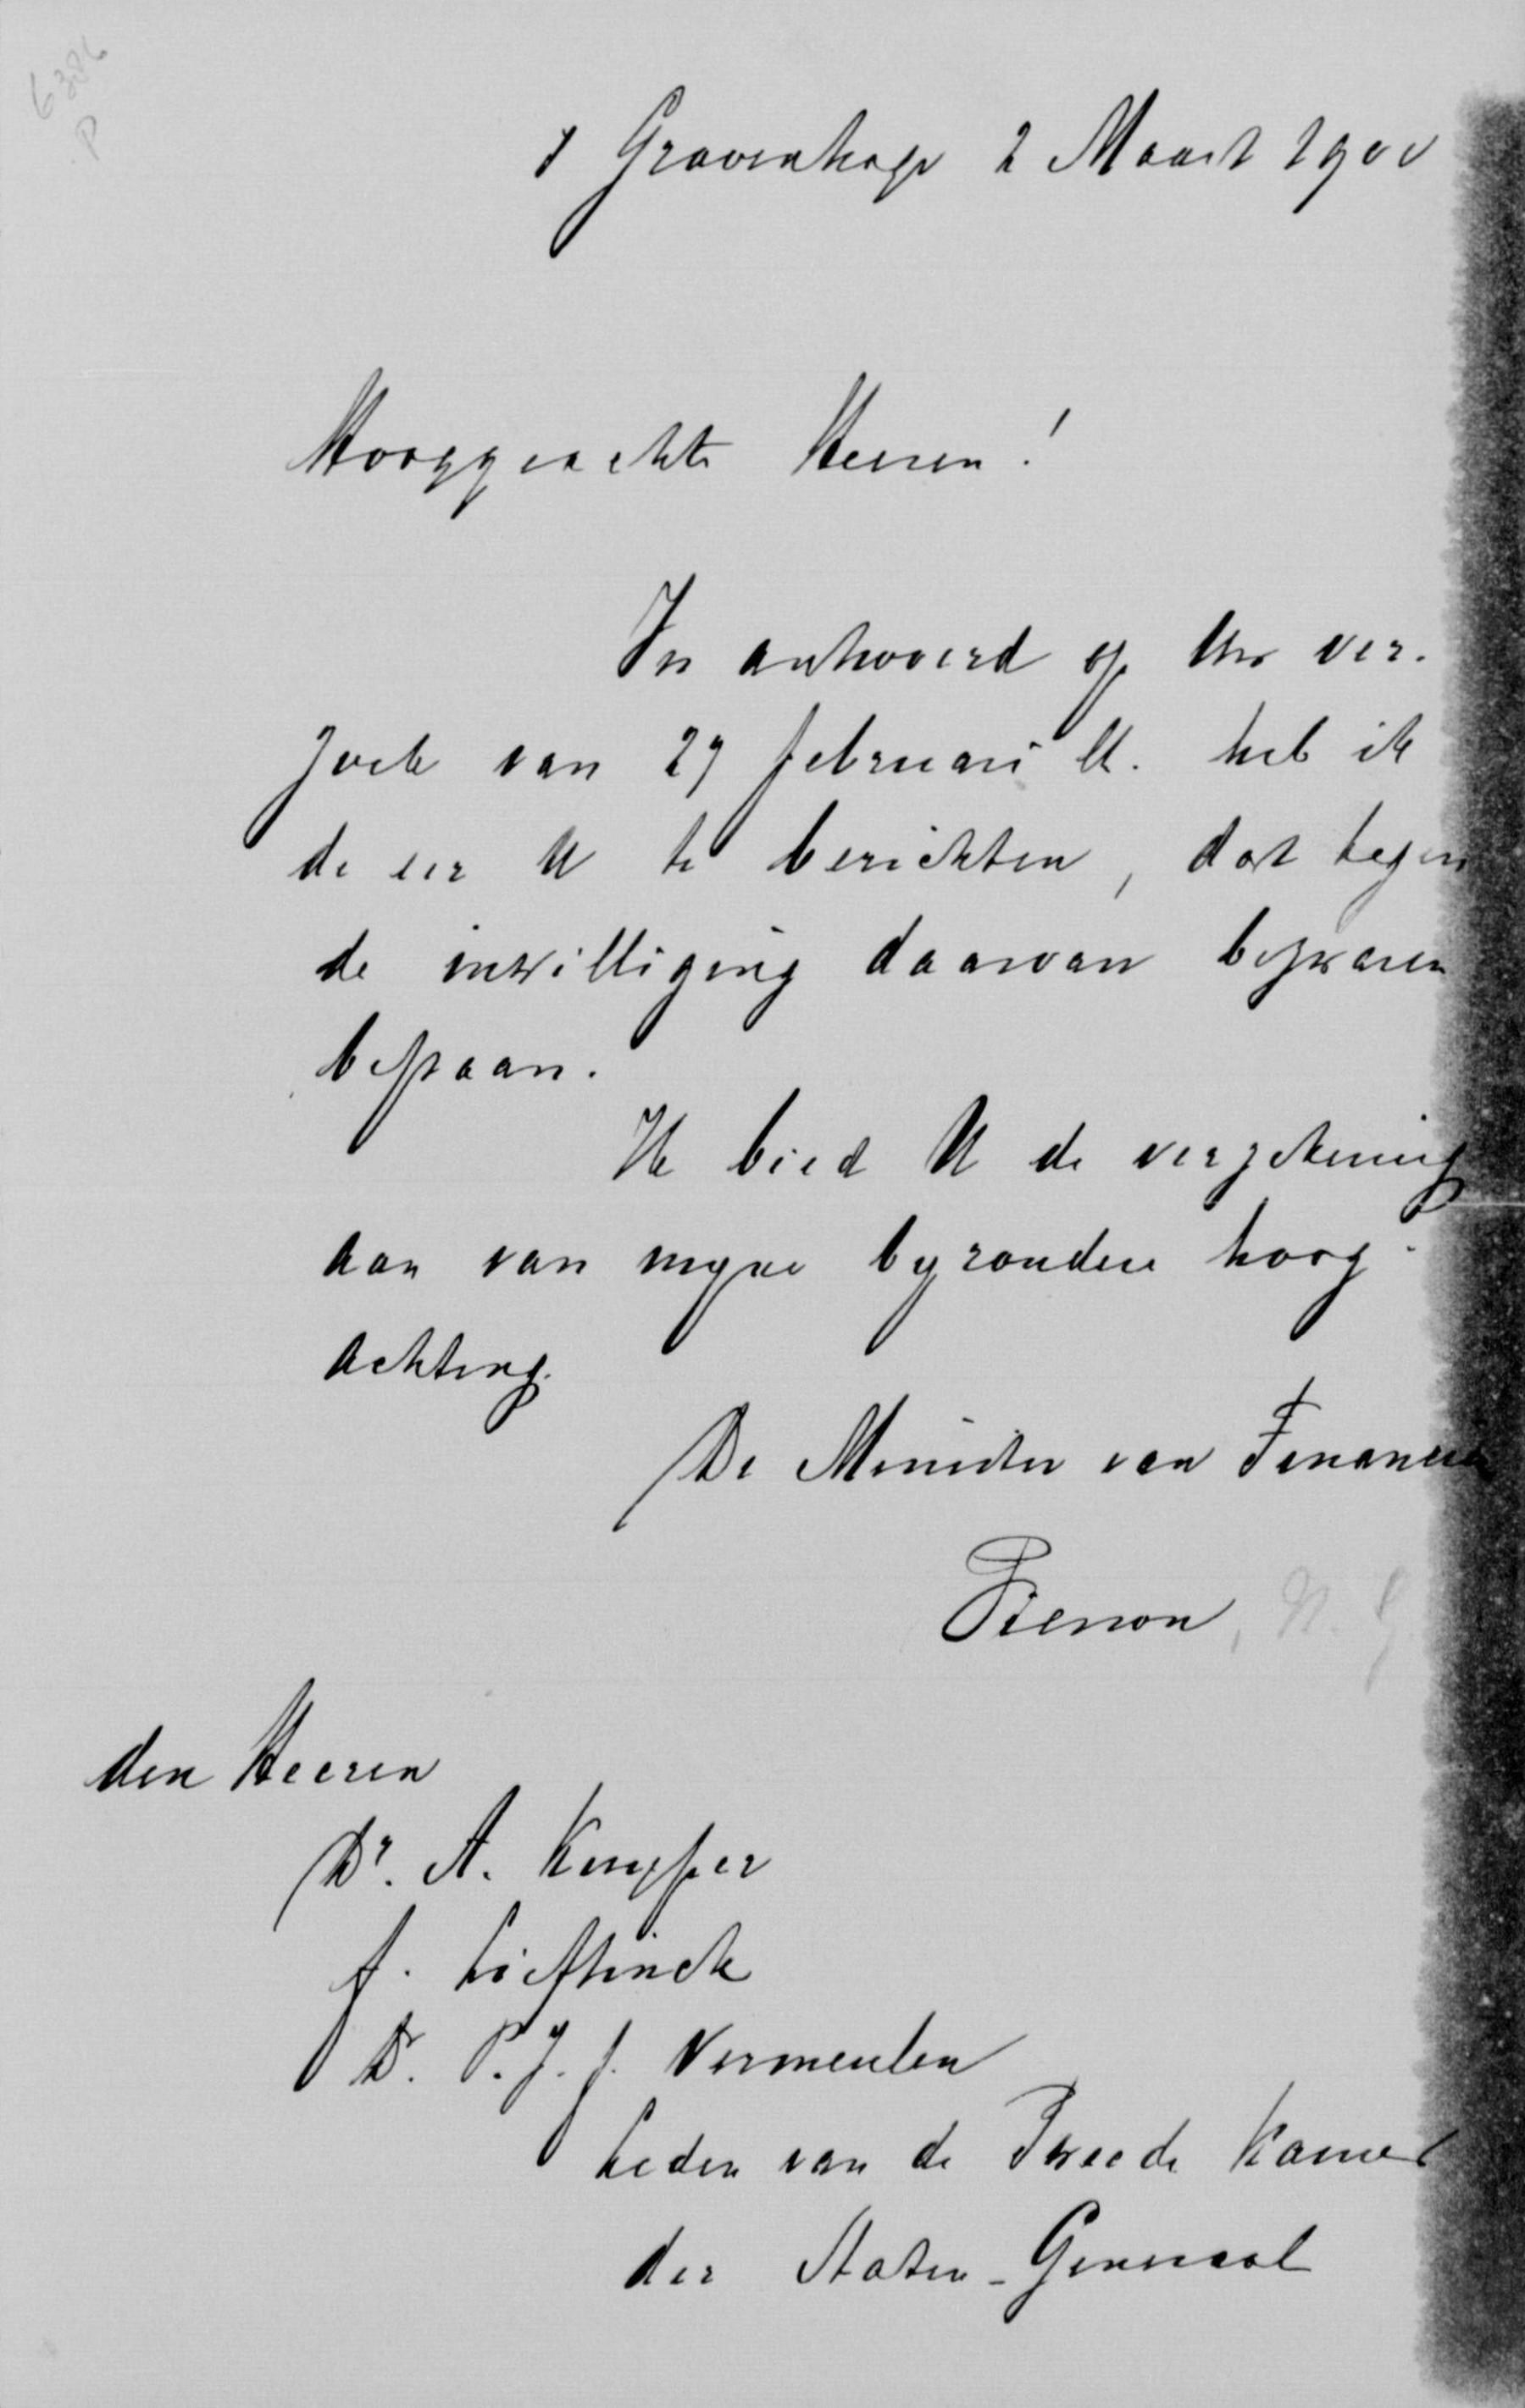 6386
P
s Gravenhage 2 Maart 1900
Hooggeachte Heeren!
In antwoord op Uw ver-
zoek van 27 februari ll. heb ik
de eer U te berichten, dat tegen
de inwilliging daarvan bezwaren
bestaan.
Ik bied U de verzekering
aan van mijne bijzondere hoog-
achting.
De Minister van Financien
Pierson, N. G.
den Heeren
Dr. A. Kuyper
J. Lieftinck
Dr. P. J. J. Vermeulen
Leden van de Tweede Kamer
der Staten-Generaal